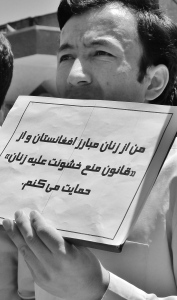 من از زنان مبارز افغانستان و از
«قانون منع خشونت علیه زنان»
حمایت می‌کنم.